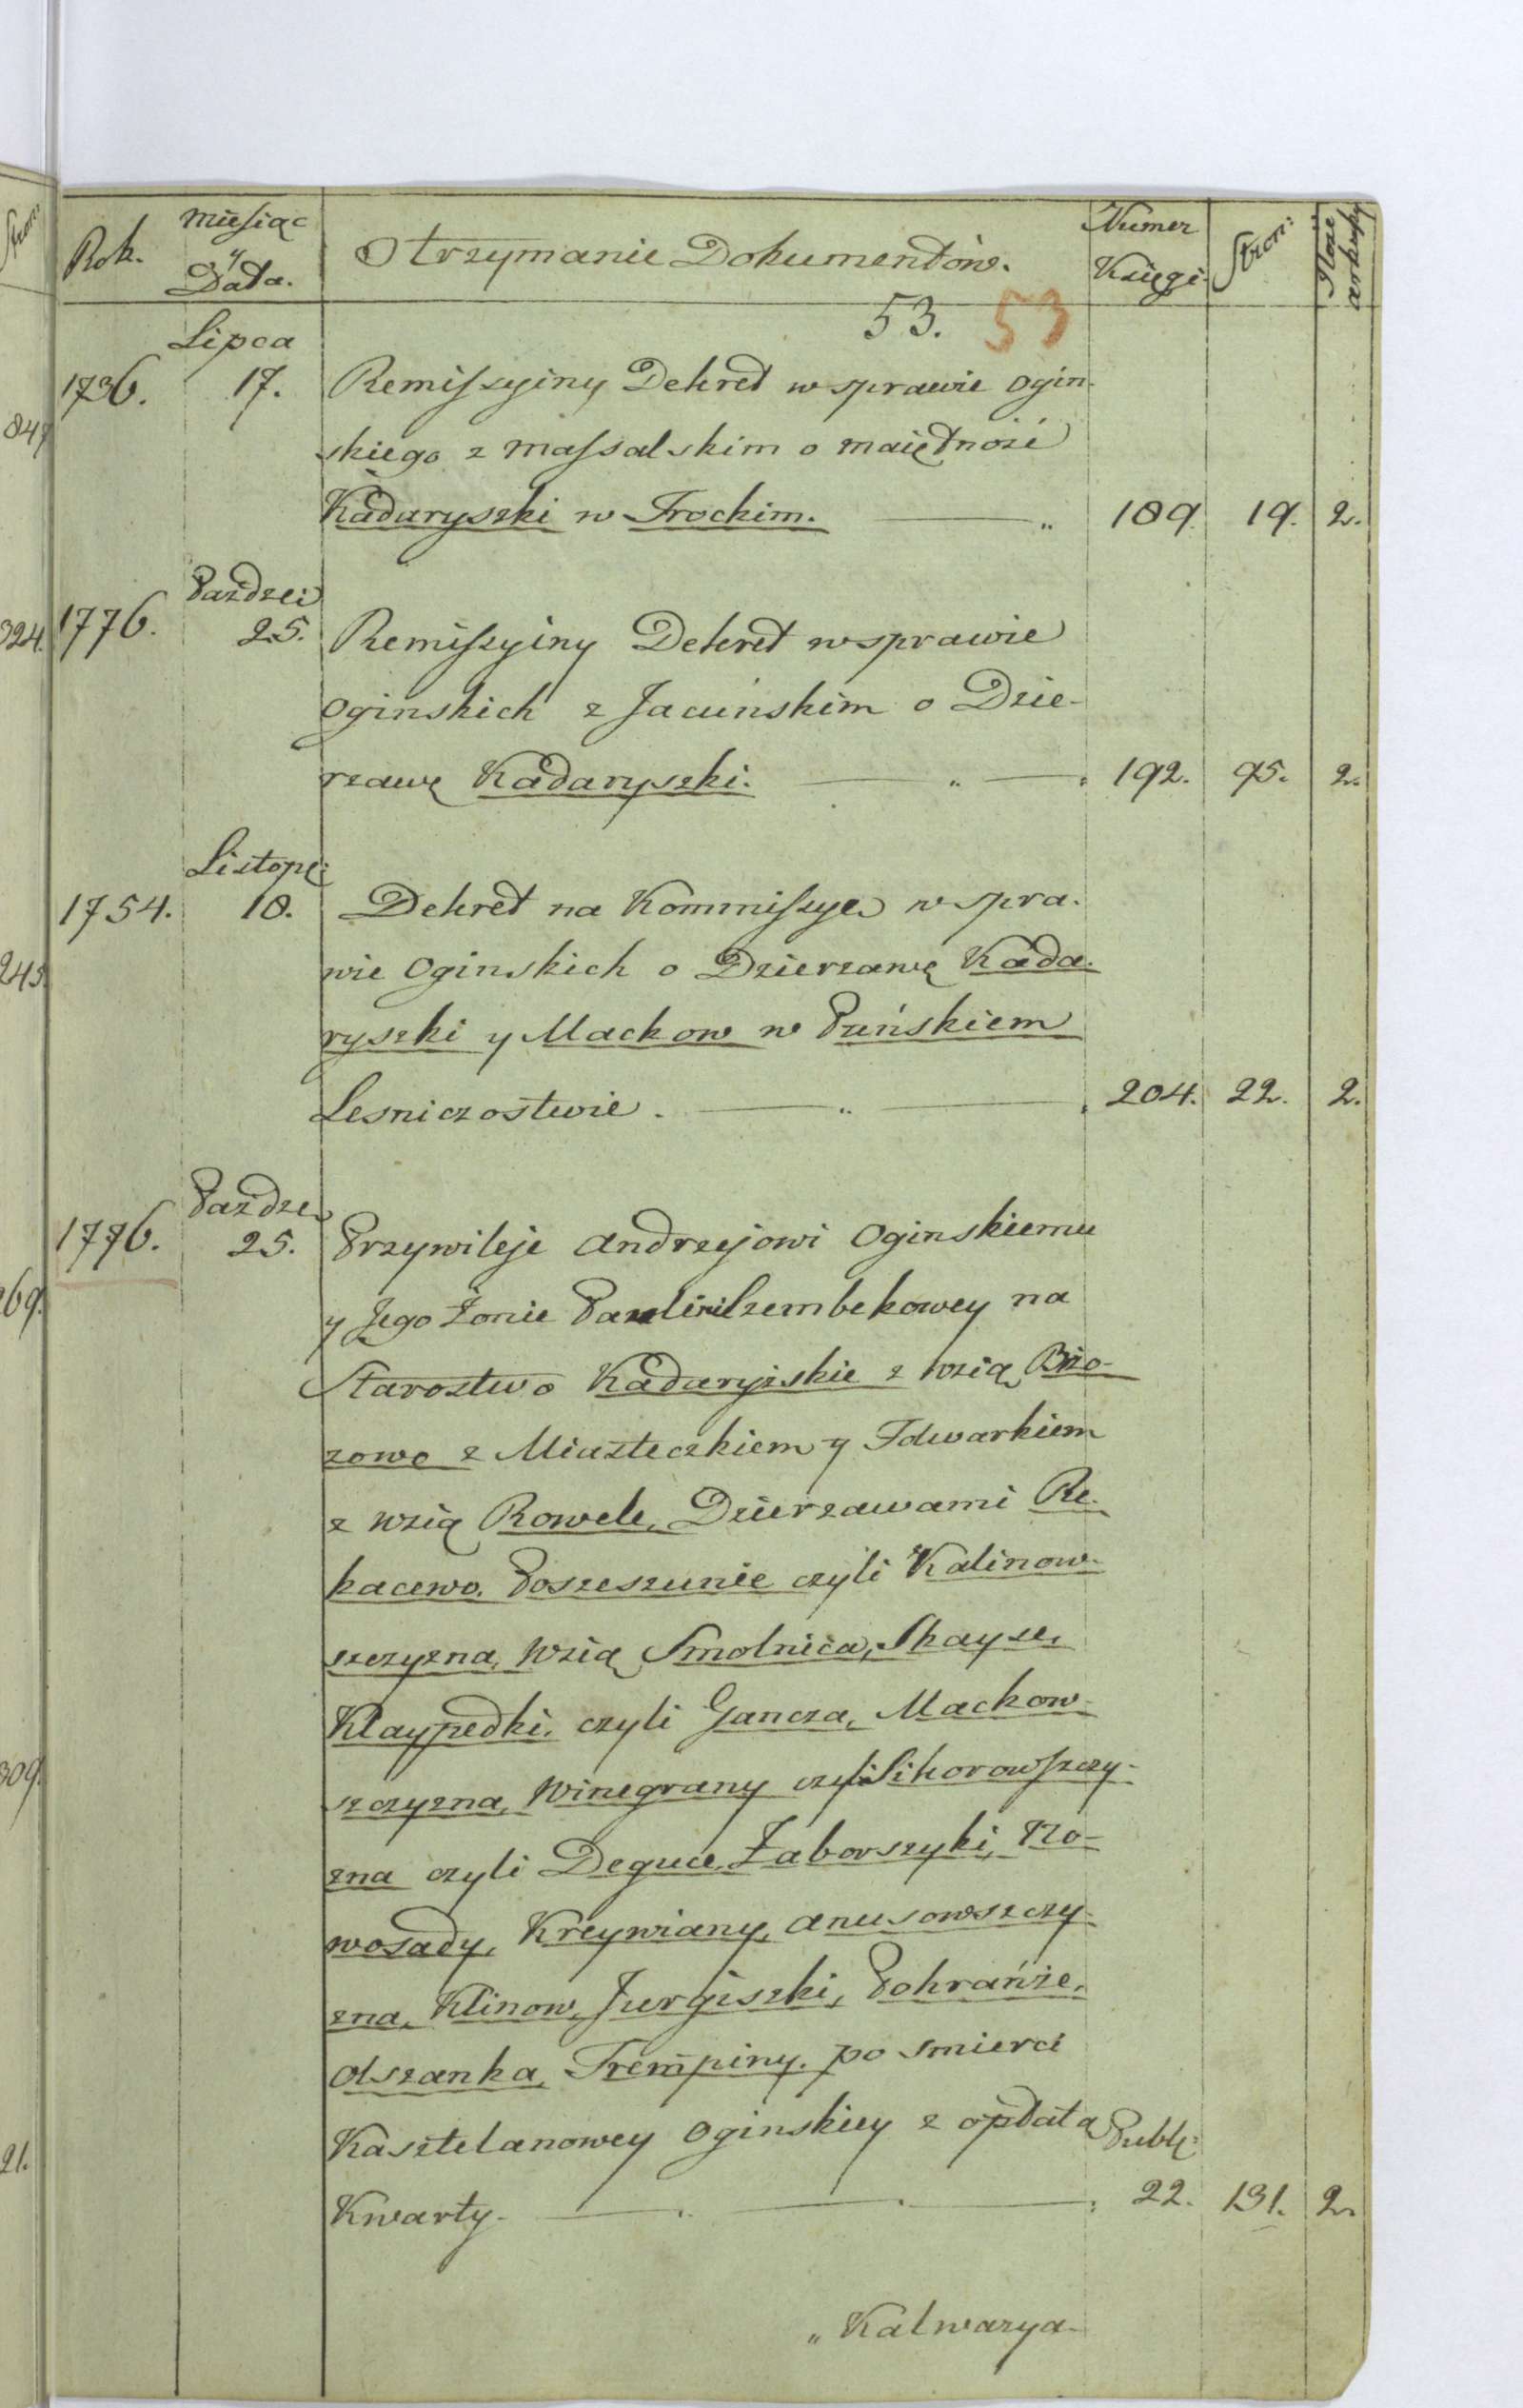 Stron:
Rok.
Miesiąc
y
Data.
Otrzymanie Dokumentów.
Numer
Księgi
Stron:
Ilość
arkuszy
53. 53
Lipca
1736. 17. Remissyiny Dekret w sprawie Ogin-
skiego z Massalskim o maiętność
Kadaryszki w Trockim. 189. 19. 2.
Paźdzer:
1776. 25. Remissyiny Dekret w sprawie
Oginskich z Jacuńskim o Dzie-
rzawę Kadaryszki. 192. 95. 2.
Listop:
1754. 18. Dekret na Kommissye w spra-
wie Oginskich o Dzierzawę Kada-
ryszki y Mackow w Puńskiem
Lesniczostwie. 204. 22. 2.
Paźdze
1776. 25. Przywileje Andrzejowi Oginskiemu
y Jego Żonie Szembekowey na
Starostwo Kadaryiskie z wsią Brzo-
zowo z Miasteczkiem y Folwarkiem
z wsią Rowele, Dzierzawami Re-
kacewo. Poszeszunie czyli Kalinow-
szczyzna, wsią Smolnica, Skayse,
Klaypedki, czyli Gancza, Mackow-
szczyzna, Winegrany czyli Sikorowszczy-
zna czyli Deguce, Zaborszyki, No-
wosady, Kreywiany, Anusowszczy-
zna, Klinow, Jurgiszki, Pokrańże,
Olszanka, Trempiny. po smierci
Kasztelanowey Oginskiey z opłatą
Publ:
Kwarty. 22. 131. 2.
„ Kalwarya-